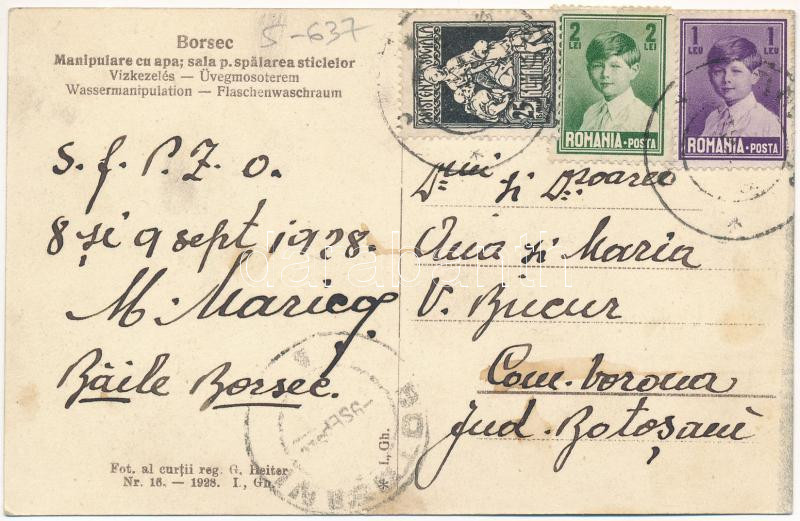 S-637
Borsec
Manipulare cu apa; sala p. spălarea sticlelor
Vizkezelés — Üvegmosoterem
Wassermanipulation — Flaschenwaschraum
ASISTENȚA SOCIALA
25
2 LEI 2 LEI
ROMANIA·POSTA
1 LEU 1 LEU
ROMANIA·POSTA
S. f. P. Z. O.
8 și 9 sept 1928.
M. Maricq
Băile Borsec.
D-lui și D. șoarei
Ana și Maria
V. Bucur
Com. Vorona
Jud. Botoșani
darabanth
Fot. al curții reg. G. Heiter
Nr. 16. — 1928. I., Gh.
* I., Gh.